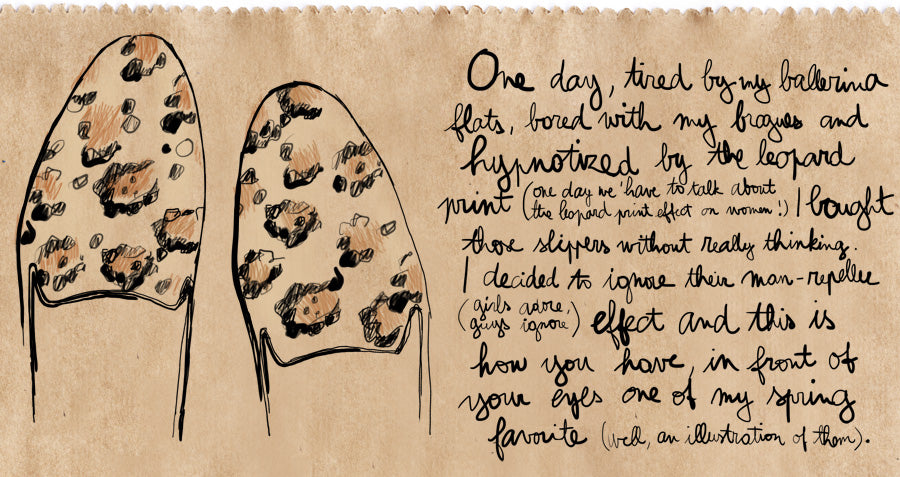 One day, tired by my ballerina
flats, bored with my brogues and
hypnotized by the leopard
print (one day we'have to talk about
the leopard print effect on women!) I bought
those slippers without really thinking.
I decided to ignore their man-repellee
(girls adore,
guys ignore) effect and this is
how you have, in front of
your eyes one of my spring
favorite (well, an illustration of them).